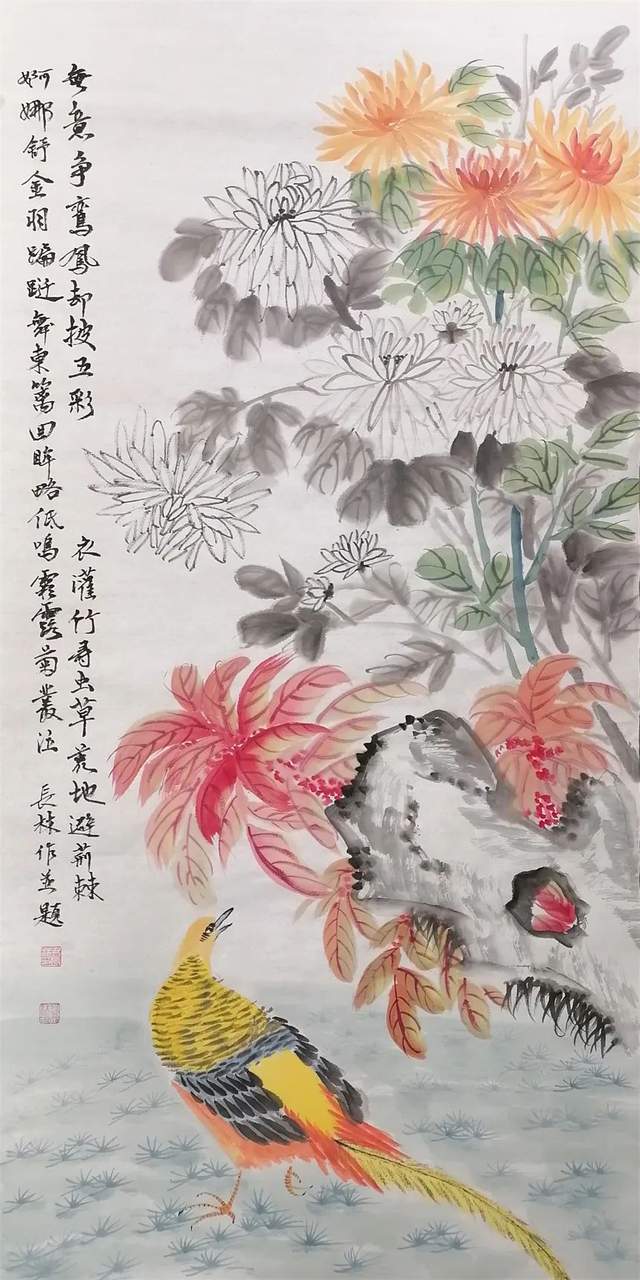 無意争鸞鳳却披五彩
衣灌竹尋虫草荒地避荊棘
婀娜舒金羽蹁跹舞東籬回眸略低鳴霜露菊叢泣 長林作並題